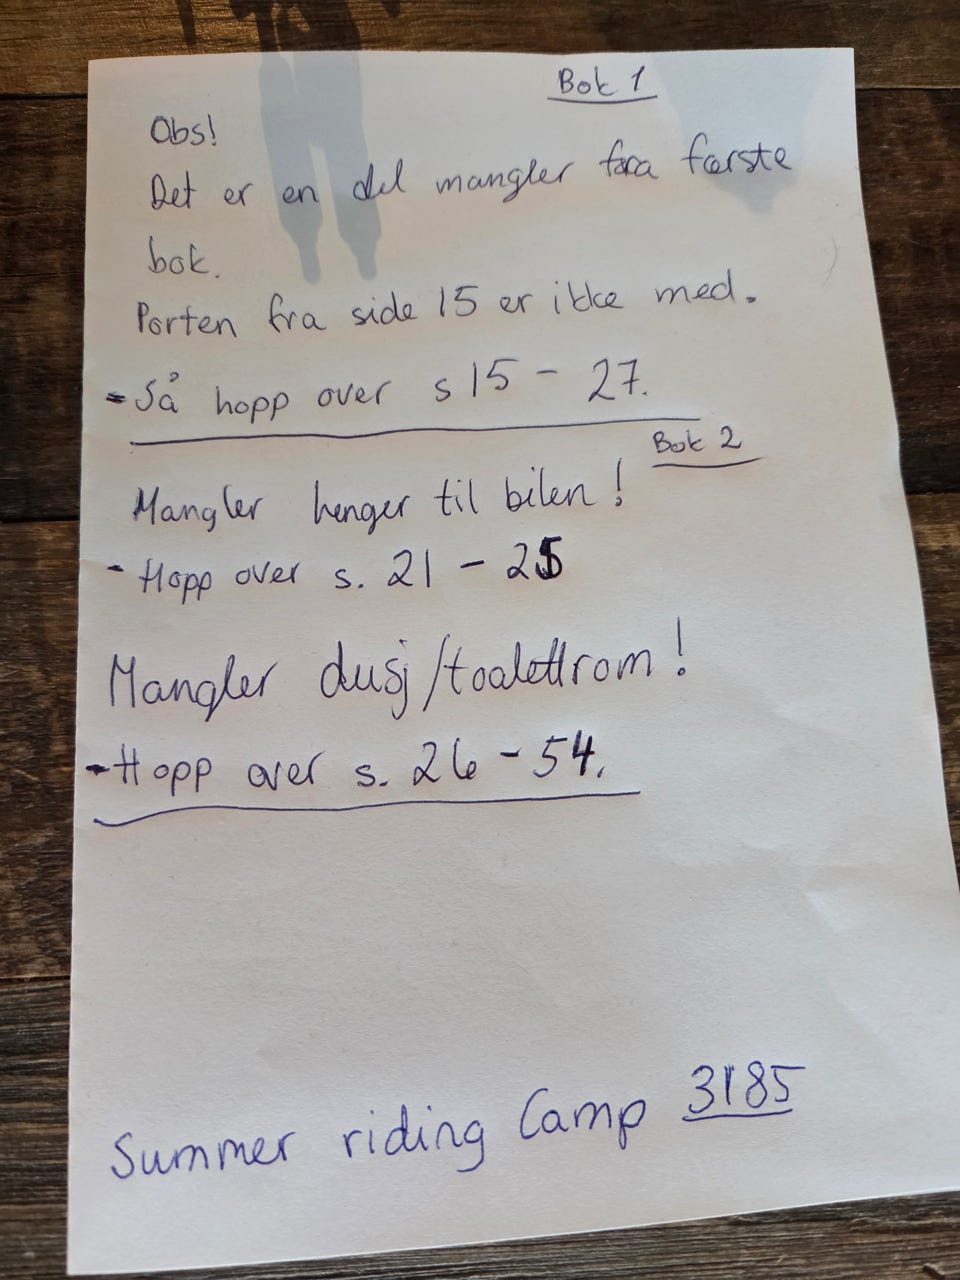 Bok 1
Obs!
Det er en del mangler fora første
bok.
Porten fra side 15 er ikke med.
- Så hopp over s 15 - 27.
Bok 2
Mangler henger til bilen!
- Hopp over s. 21 - 25
Mangler dusj/toalettrom!
- Hopp over s. 26 - 54.
Summer riding Camp 3185